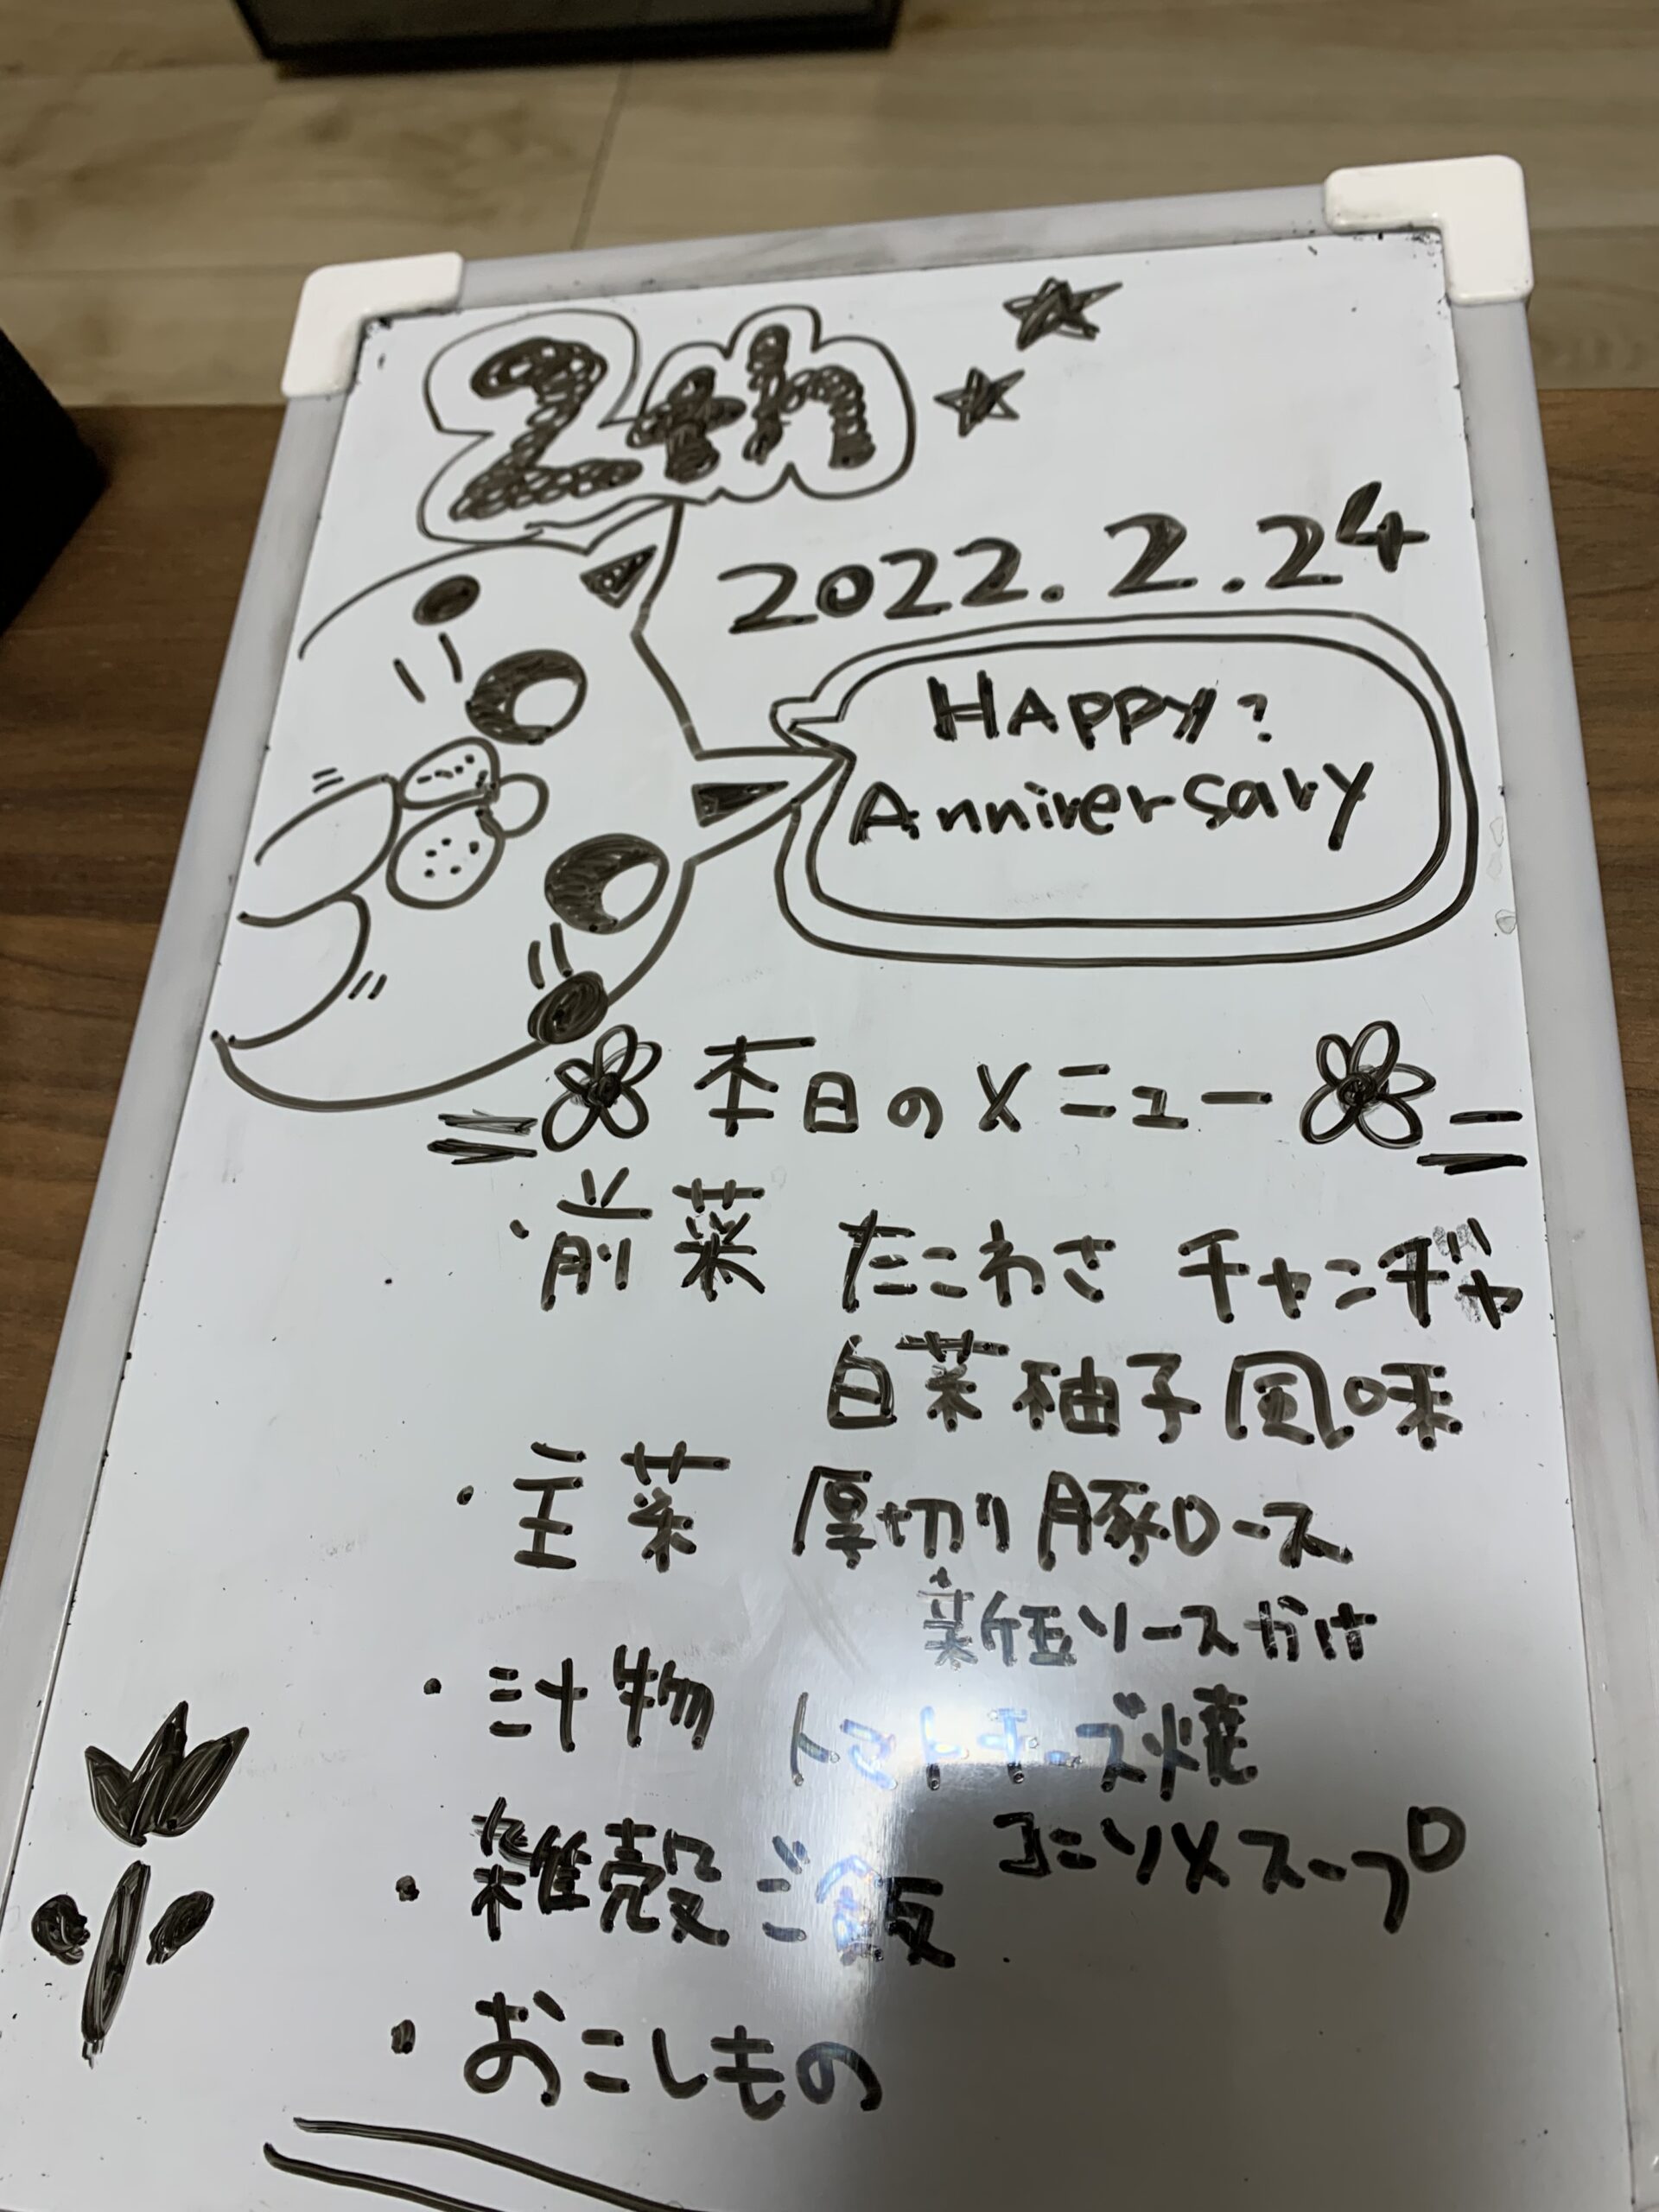 2th
2022.2.24
HAPPY?
Anniversary
本日のメニュー
・前菜 たこわさ チャンヂャ
白菜柚子風味
・主菜 厚切り豚ロース
新玉ソースかけ
・汁物 トマトチーズ焼
コンソメスープ
・雑穀ご飯
・おこしもの